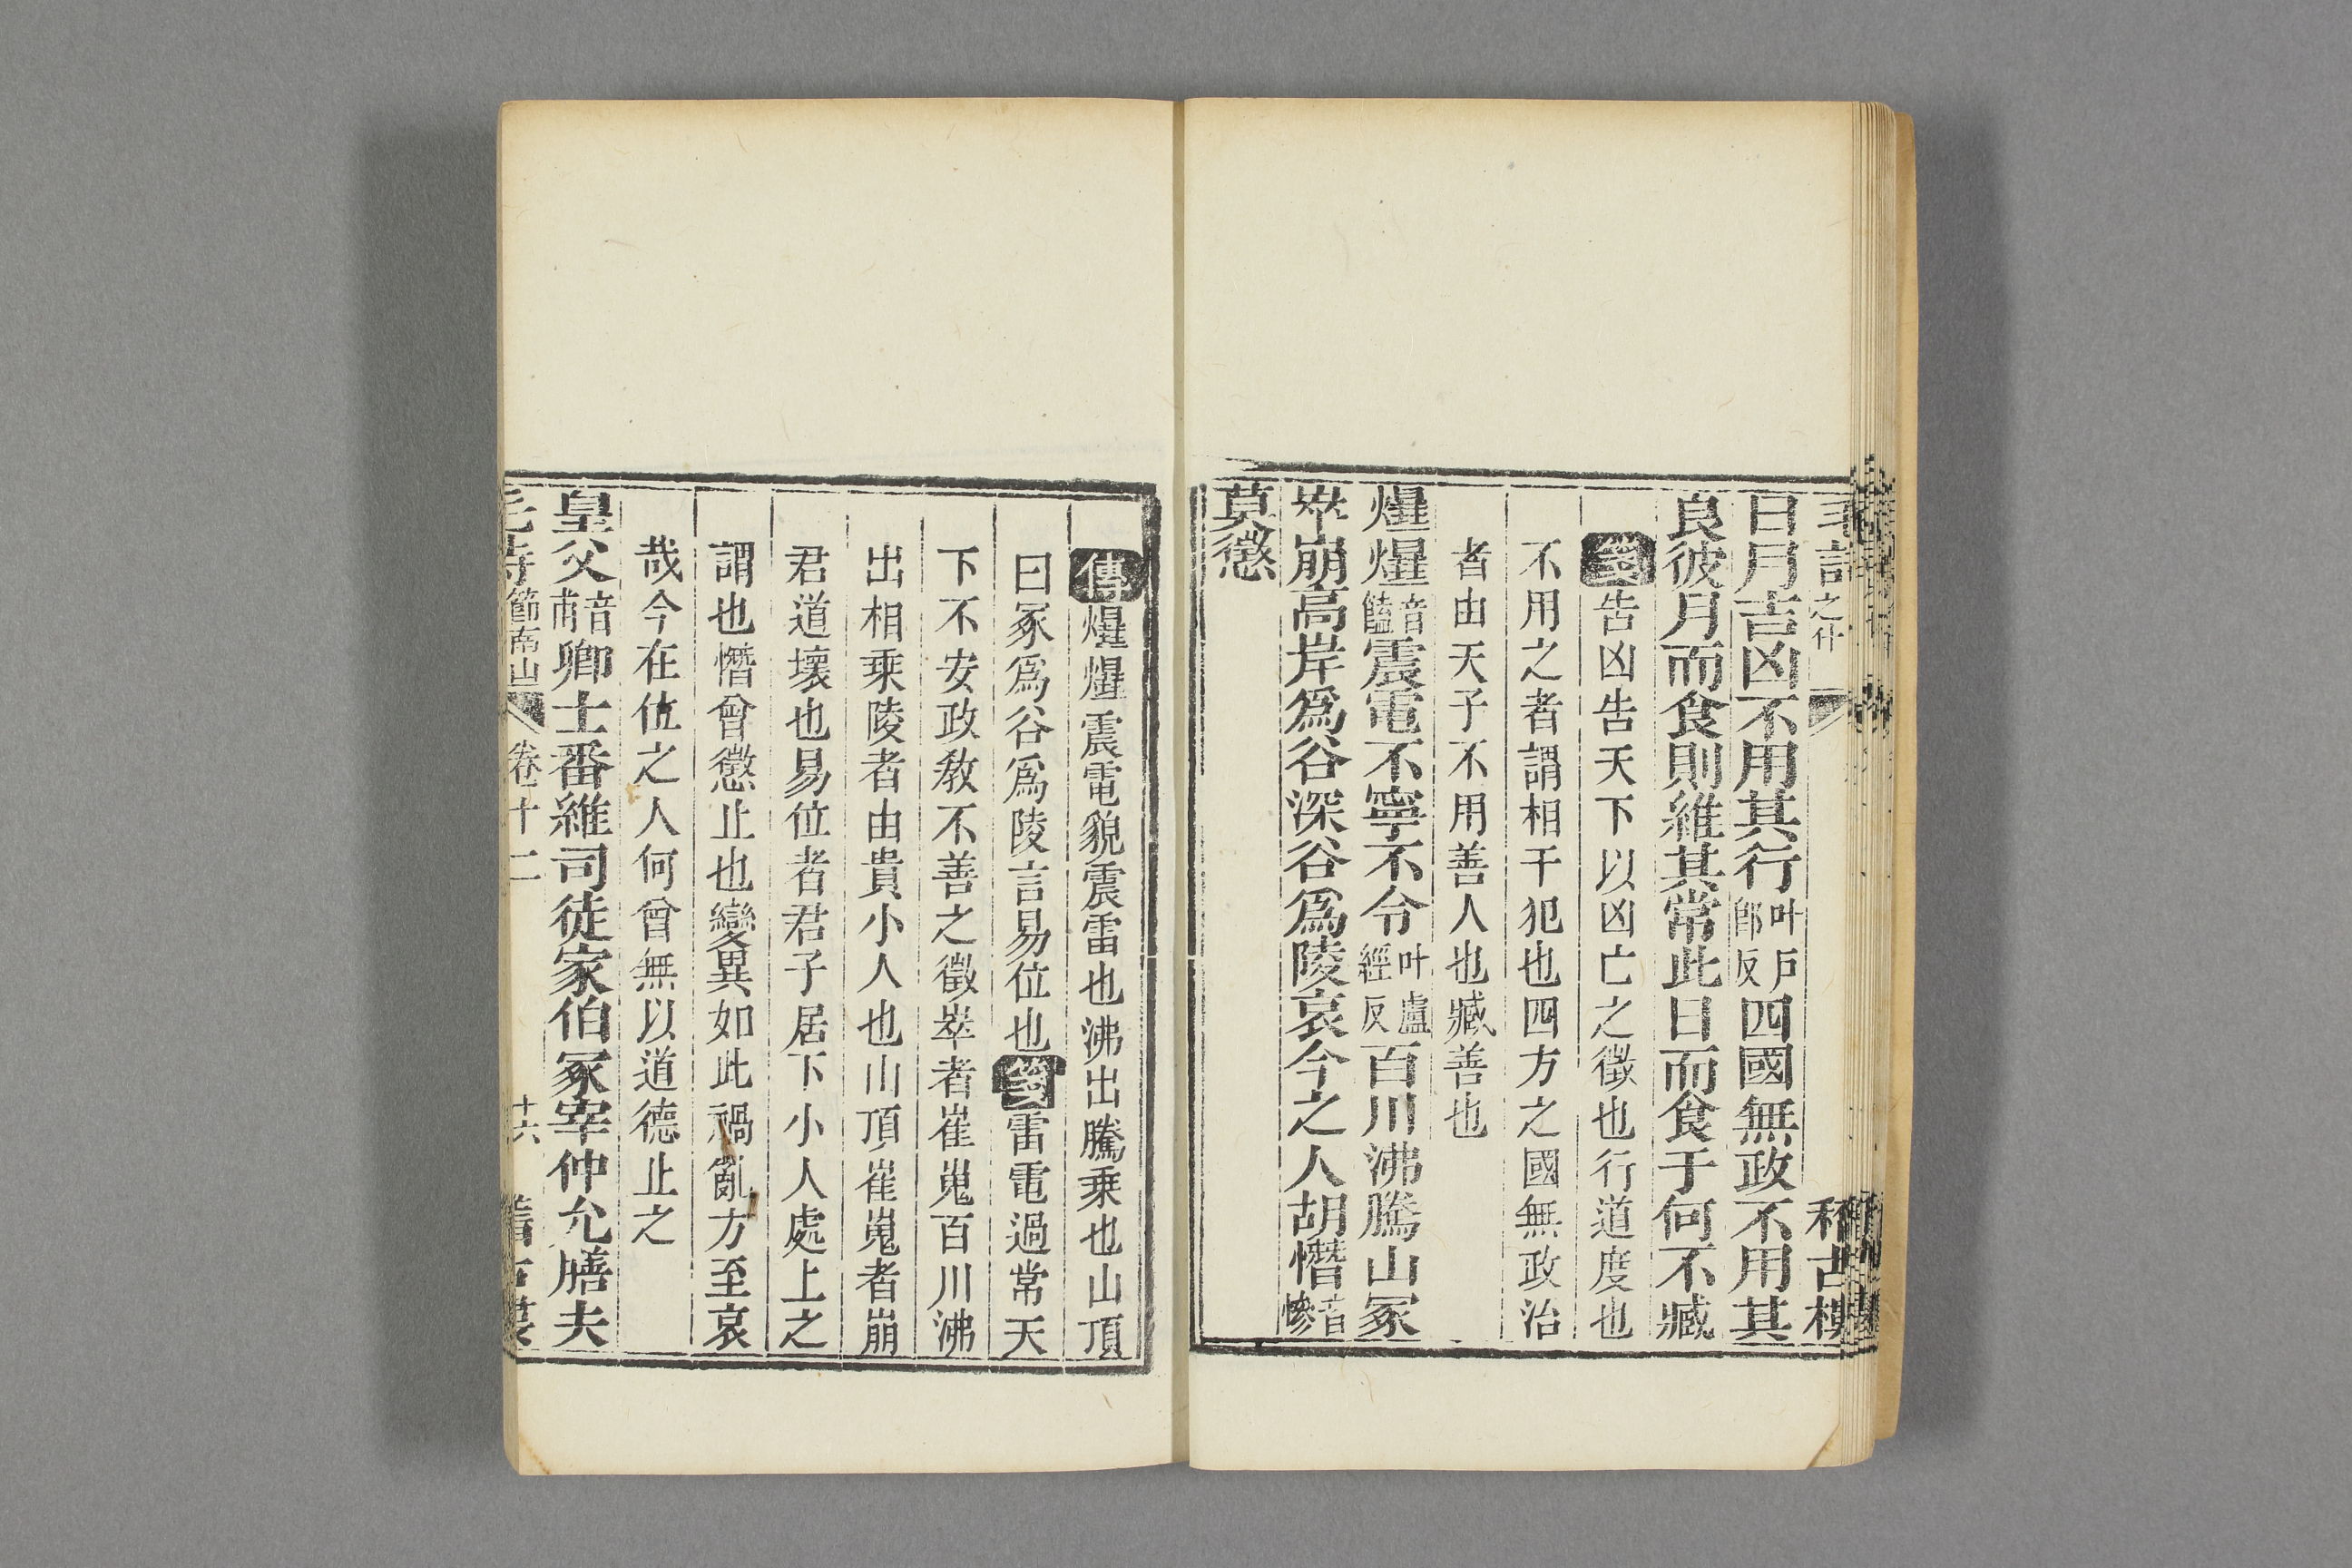 日月吉凶不用其行叶戶郎反四國無政不用其
良彼月而食則維其常此日而食于何不臧
箋告凶告天下以凶亡之徵也行道度也
不用之者謂相干犯也四方之國無政治
者由天子不用善人也臧善也
爗爗音饁震電不寧不令叶盧經反百川沸騰山冢
崒崩高岸爲谷深谷爲陵哀今之人胡憯音慘
莫懲
傳爗爗震電貌震雷也沸出騰乗也山頂
曰冢爲谷爲陵言易位也箋雷電過常天
下不安政敎不善之徵崒者崔嵬百川沸
出相乗陵者由貴小人也山頂崔嵬者崩
君道壞也易位者君子居下小人處上之
謂也憯曾懲止也變異如此禍亂方至哀
哉今在位之人何曾無以道德止之
皇父音甫卿士番維司徒家伯冢宰仲允膳夫
節南山 卷十二 十六